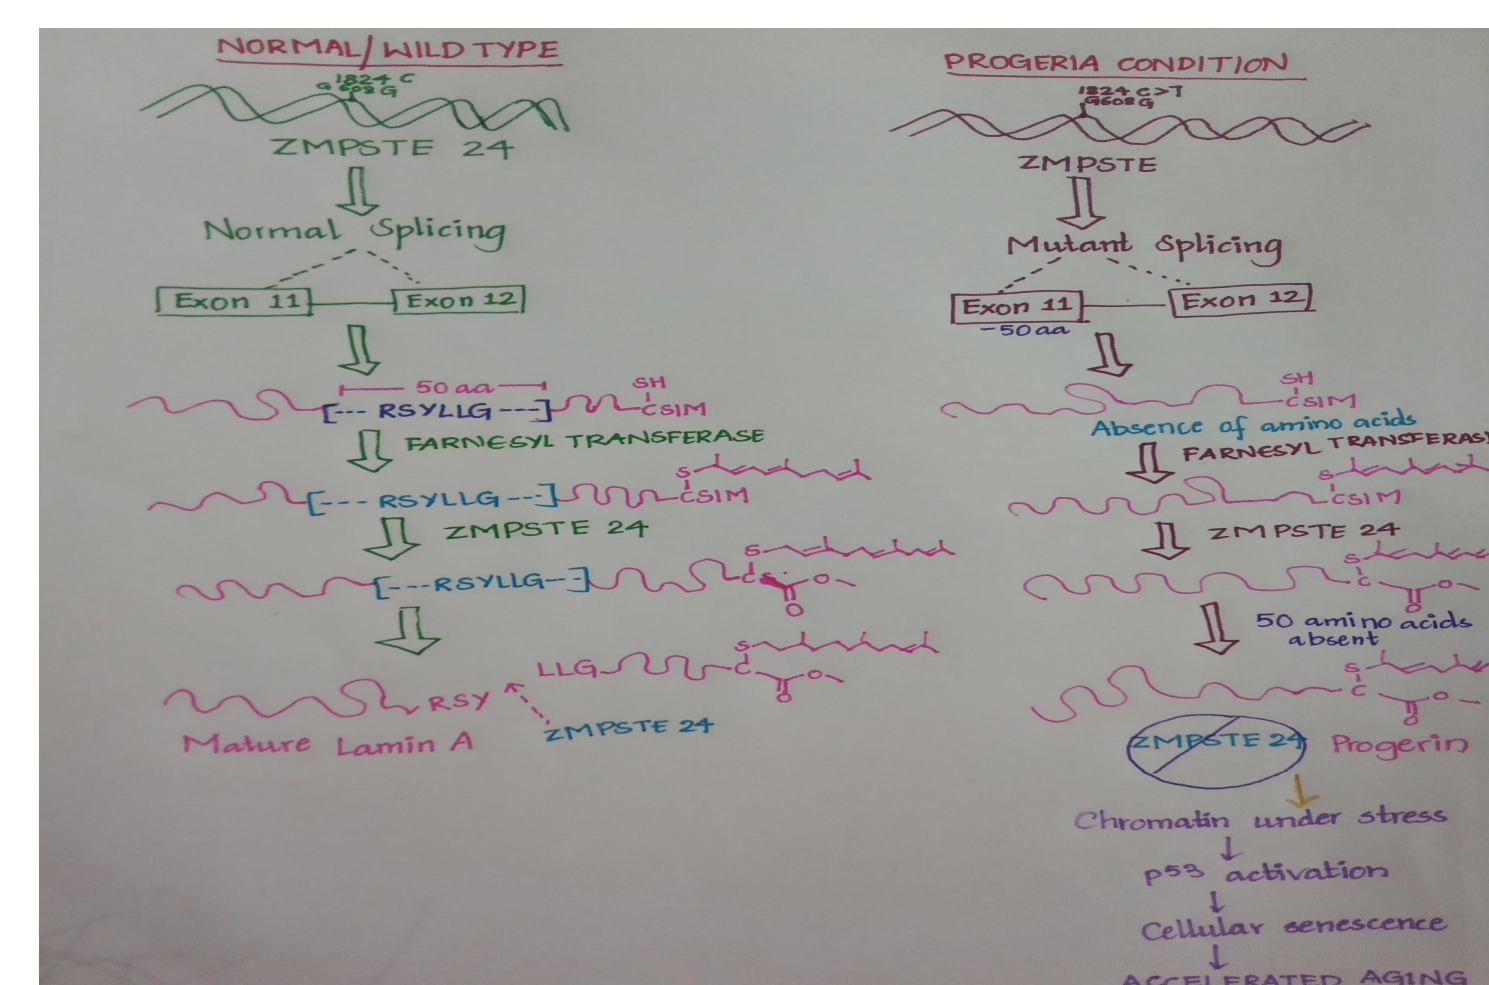 NORMAL/WILD TYPE
1824 C
G 608 G
ZMPSTE 24
Normal Splicing
Exon 11
Exon 12
50 aa
SH
[--- RSYLLG ---]
CSIM
FARNESYL TRANSFERASE
S
[--- RSYLLG ---]
CSIM
ZMPSTE 24
S
[---RSYLLG--]
C
O
O
S
LLG
C
O
O
RSY
ZMPSTE 24
Mature Lamin A
PROGERIA CONDITION
1824 C>T
G608 G
ZMPSTE
Mutant Splicing
Exon 11
Exon 12
-50 aa
SH
CSIM
Absence of amino acids
FARNESYL TRANSFERAS
S
CSIM
ZMPSTE 24
S
C
O
O
50 amino acids
absent
S
C
O
O
ZMPSTE 24
Progerin
Chromatin under stress
p53 activation
Cellular senescence
ACCELERATED AGING